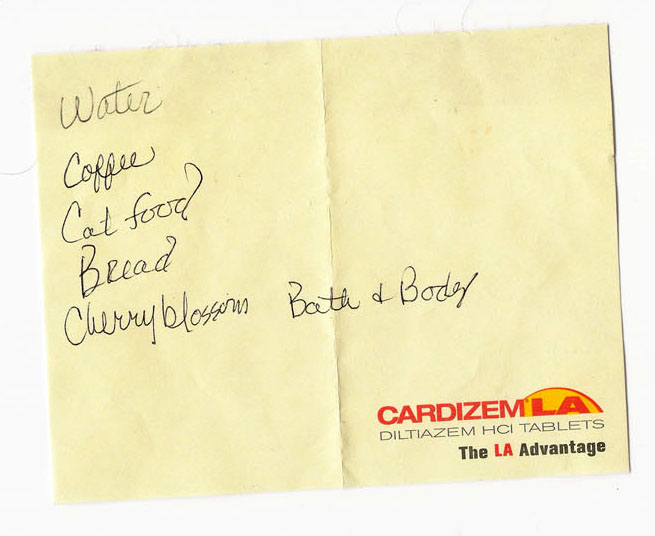 Water
Coffee
Cat food
Bread
Cherryblossom Bath & Body
CARDIZEM® LA
DILTIAZEM HCl TABLETS
The LA Advantage